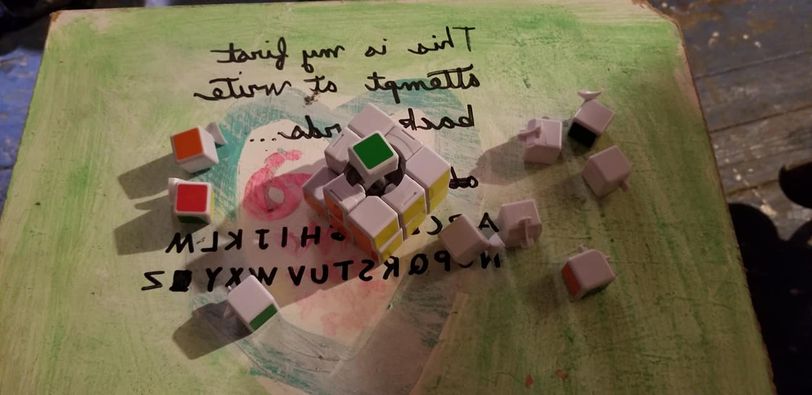 This is my first
attempt at write
back rds...
ABC GHIJKLM
NOPQRSTUVWXYZ